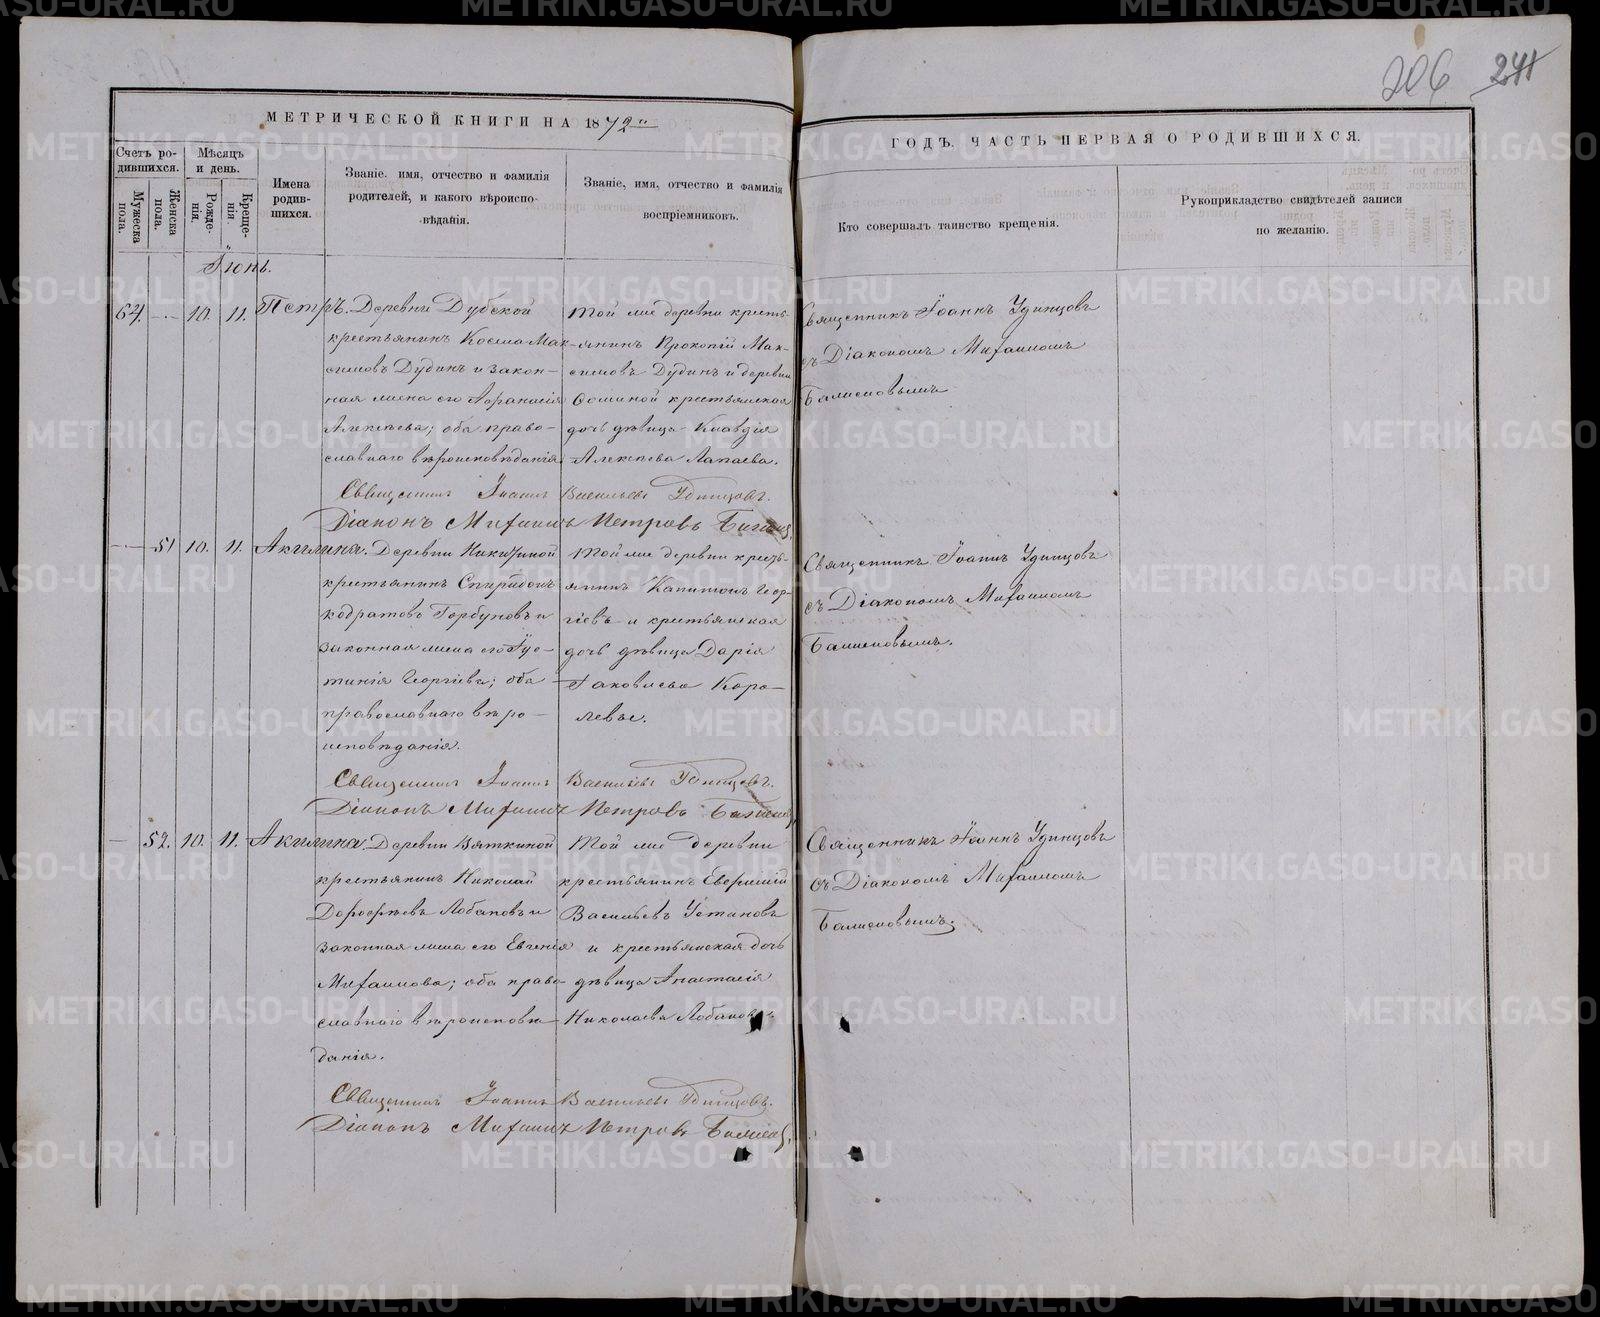 206 241
МЕТРИЧЕСКОЙ КНИГИ НА 1872й
ГОДЪ. ЧАСТЬ ПЕРВАЯ О РОДИВШИХСЯ.
Счетъ родившихся.
Мужеска пола.
Женска пола.
Мѣсяцъ и день.
Рожденія.
Крещенія.
Имена родившихся.
Званіе, имя, отчество и фамилія родителей, и какого вѣроисповѣданія.
Званіе, имя, отчество и фамилія воспріемниковъ.
Кто совершалъ таинство крещенія.
Рукоприкладство свидѣтелей записи по желанію.
Іюнь.
64. 10. 11. Петръ.
Деревни Дубской
крестьянинъ Косма Мак-
симовъ Дудинъ и закон-
ная жена его Афанасія
Алексѣева; оба право-
славнаго вѣроисповѣданія.
Той же деревни кресть-
янинъ Прокопій Мак-
симовъ Дудинъ и деревни
Фоминой крестьянская
дочь дѣвица Клавдія
Алексѣева Лапаева.
Священникъ Іоаннъ Удинцовъ
съ Діакономъ Михаиломъ
Священникъ Іоаннъ Васильевъ Удинцовъ.
Діаконъ Михаилъ Петровъ
51 10. 11. Акилина.
Деревни Никитиной
крестьянинъ Спиридонъ
Кодратовъ Горбуновъ и
законная жена его Іус-
тинія Георгіева; оба
православнаго вѣро-
исповѣданія.
Той же деревни кресть-
янинъ Капитонъ Геор-
гіевъ и крестьянская
дочь дѣвица Дарія
Іаковлева Коро-
левы.
Священникъ Іоаннъ Удинцовъ
съ Діакономъ Михаиломъ
Священникъ Іоаннъ Васильевъ Удинцовъ.
Діаконъ Михаилъ Петровъ
52. 10. 11. Акилина.
Деревни Вяткиной
крестьянинъ Николай
Дорофѣевъ Лобановъ и
законная жена его Евгенія
Михаилова; оба право-
славнаго вѣроисповѣ-
данія.
Той же деревни
крестьянинъ
Васильевъ Устиновъ
и крестьянская дочь
дѣвица Анастасія
Николаева Лобановы
Священникъ Іоаннъ Удинцовъ
съ Діакономъ Михаиломъ
Священникъ Іоаннъ Васильевъ Удинцовъ.
Діаконъ Михаилъ Петровъ
METRIKI.GASO-URAL.RU